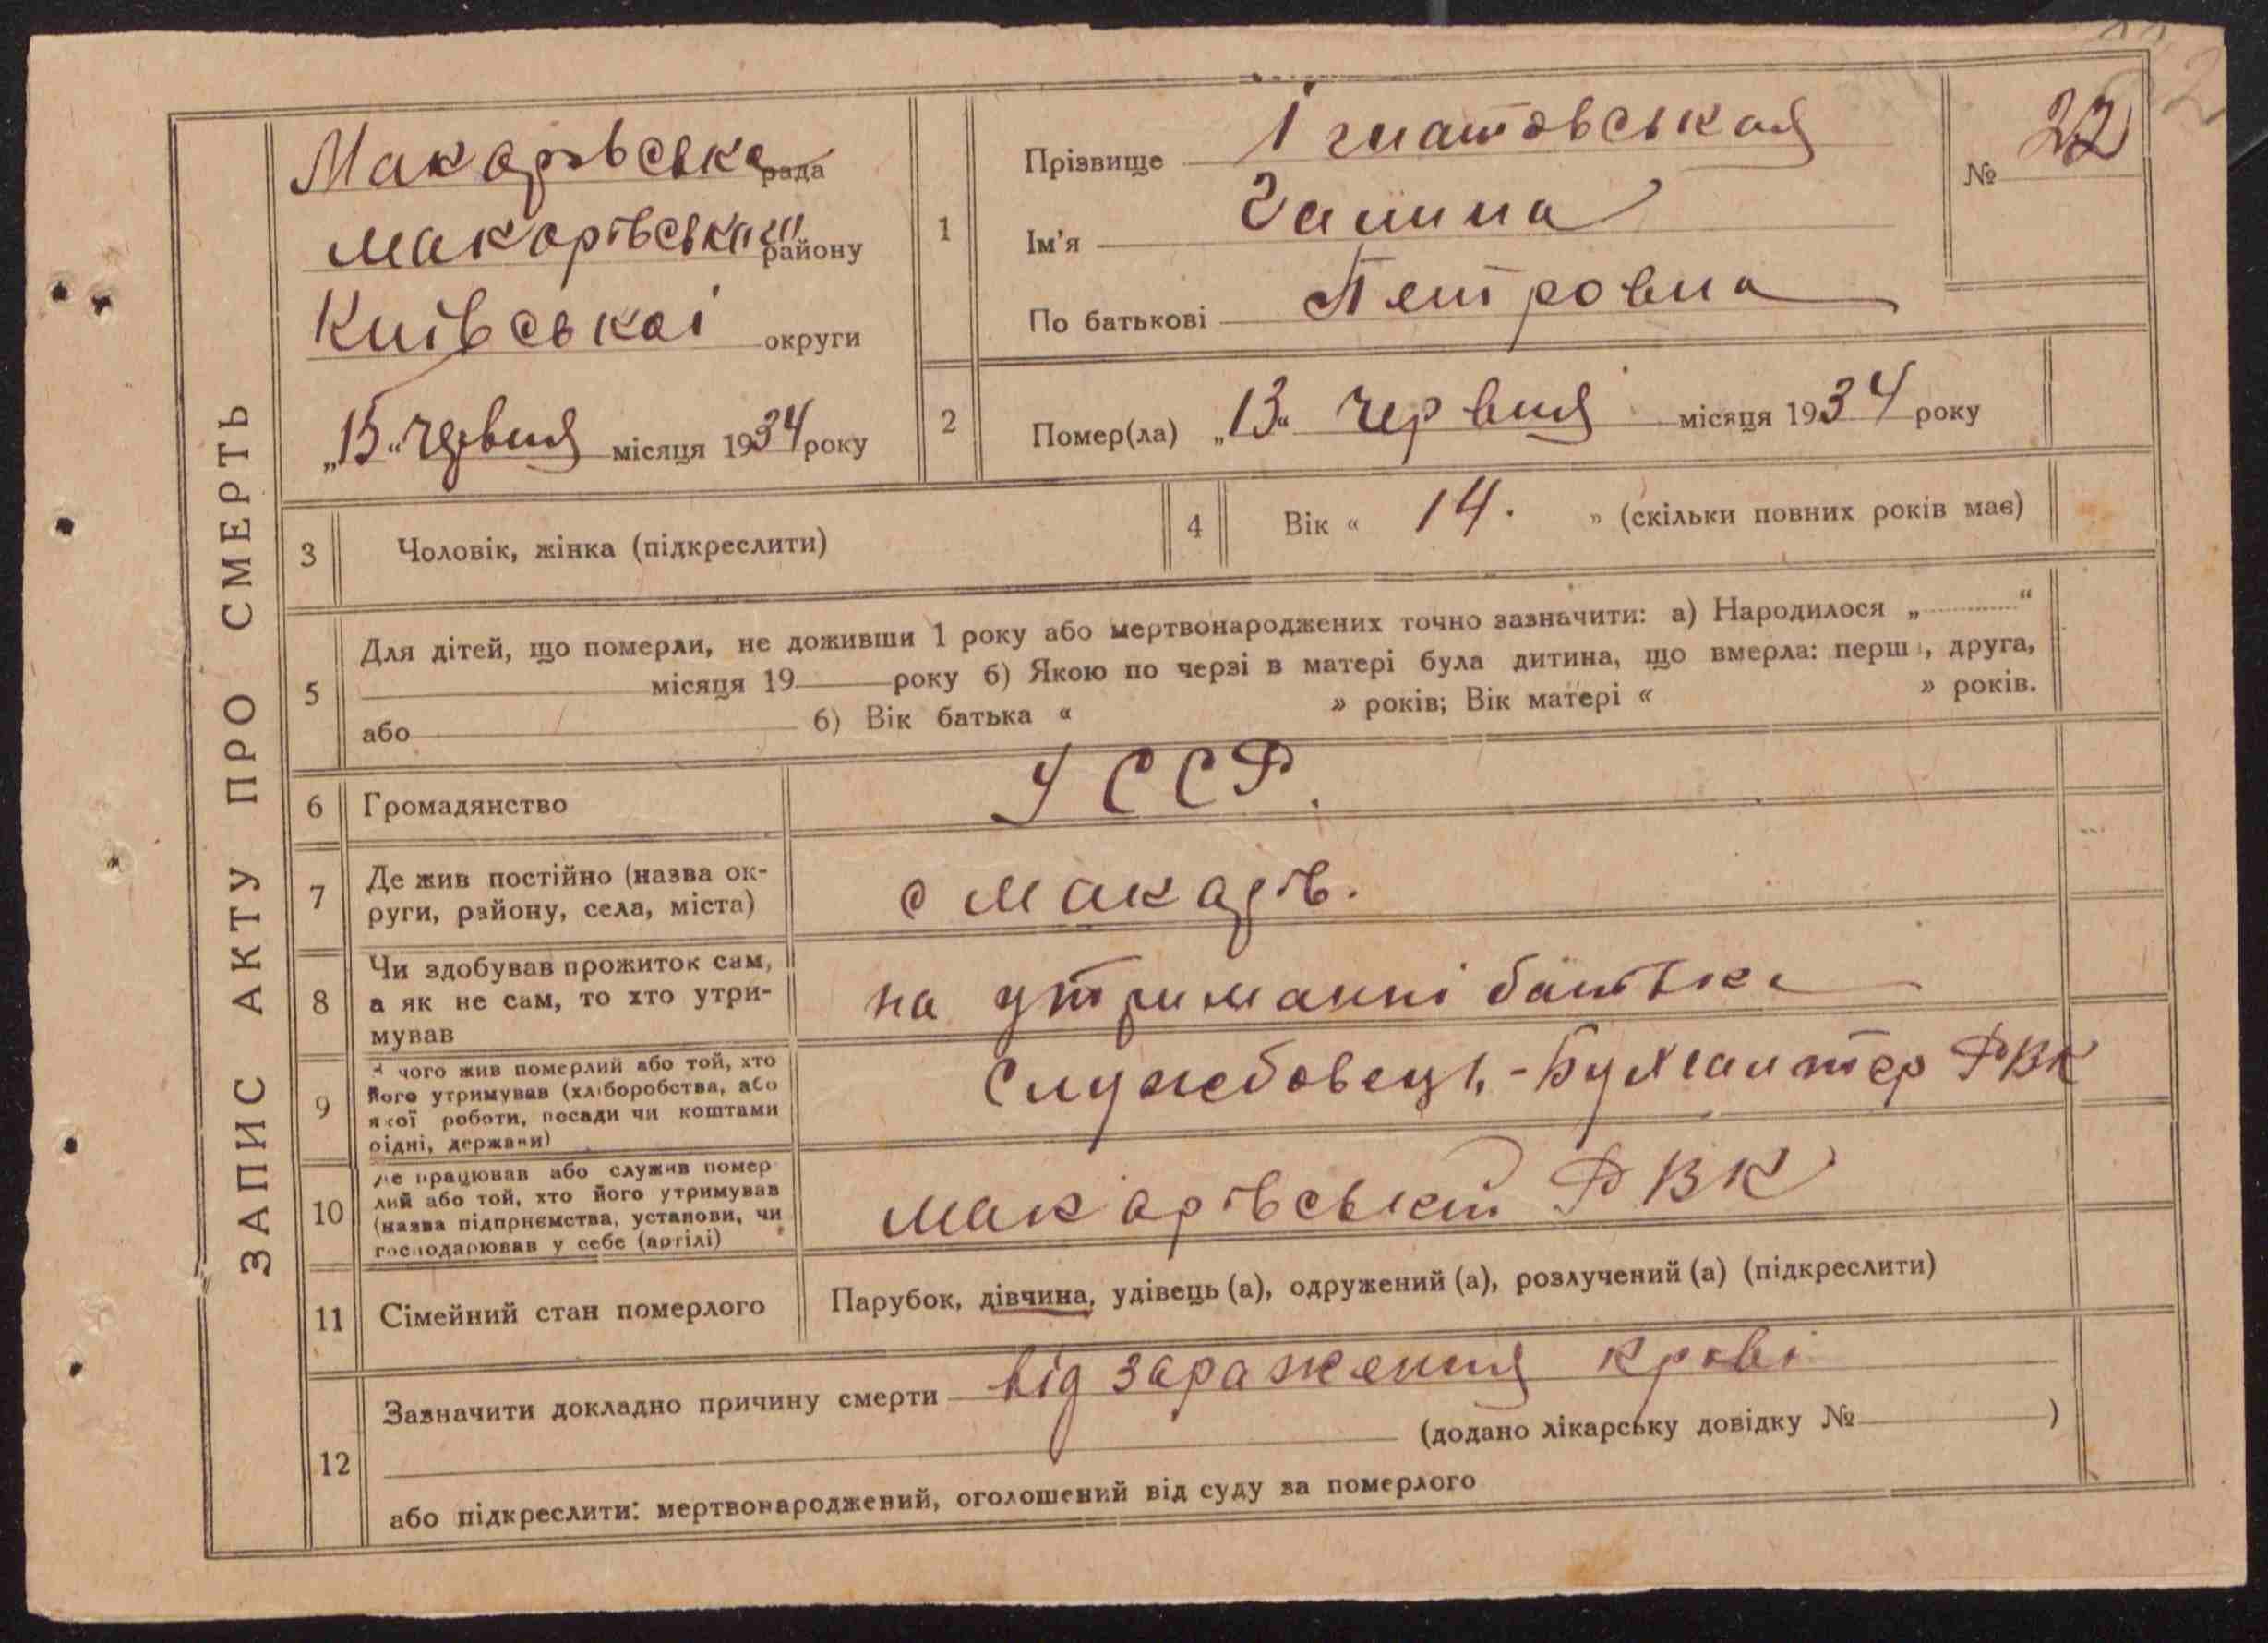 ЗАПИС АКТУ ПРО СМЕРТЬ
Макарівська рада
Макарівського району
Київської округи
„15“ червня місяця 1934 року
1
Прізвище Ігнатовськая
Ім'я Галина
По батькові Петровна
№ 22
2
Помер(ла) „13“ червня місяця 1934 року
3 Чоловік, жінка (підкреслити)
4 Вік « 14. » (скільки повних років має)
5
Для дітей, що померли, не доживши 1 року або мертвонароджених точно зазначити: а) Народилося „ “
місяця 19 року б) Якою по черзі в матері була дитина, що вмерла: перш , друга,
або б) Вік батька « » років; Вік матері « » років.
6 Громадянство УССР.
7 Де жив постійно (назва ок-
руги, району, села, міста)
с Макарів.
8 Чи здобував прожиток сам,
а як не сам, то хто утри-
мував
на утриманні батька
9 З чого жив померлий або той, хто
його утримував (хліборобства, або
якої роботи, посади чи коштами
рідні, держави)
Службовець - Бухгалтер РВК
10 Де працював або служив помер
лий або той, хто його утримував
(назва підприємства, установи, чи
господарював у себе (артілі)
Макарівський РВК
11 Сімейний стан померлого Парубок, дівчина, удівець (а), одружений (а), розлучений (а) (підкреслити)
12 Зазначити докладно причину смерти від зараження крові
(додано лікарську довідку № )
або підкреслити: мертвонароджений, оголошений від суду за померлого